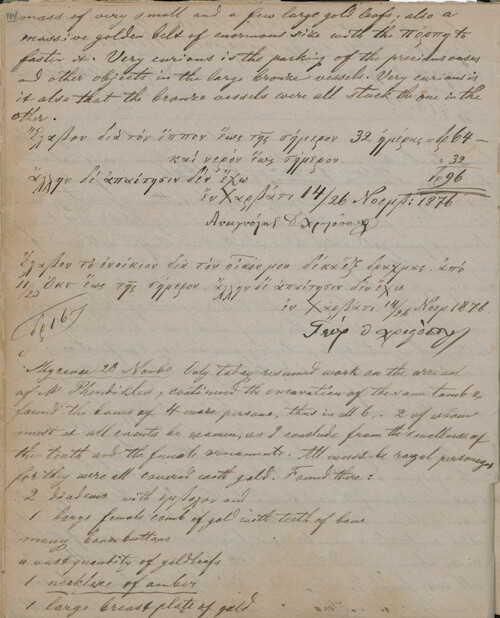 mass of very small and a few large gold leafs; also a
massive golden belt of enormous size with the πόρπη to
fasten it. Very curious is the packing of the precious ones
and other objects in the large bronze vessels. Very curious is
it also that the bronze vessels were all stuck the one in the
other.
Ἔλαβον διὰ τὸν ἵππον ἕως τῆς σήμερον 32 ἡμέρας δρ 64 —
καὶ νερόν ἕως σήμερον " 32
ἄλλην δὲ ἀπαίτησιν δὲν ἔχω δρ 96
ἐν Χαρβάτι 14/26 Νοεμβ: 1876
Ἔλαβον τὸ ἐνοίκιον διὰ τὸν οἶκον μου δέκα ἕξ δραχμας ἀπὸ
11/23 Οκτ ἕως τῆς σήμερον. ἄλλην δὲ ἀπαίτησιν δὲν ἔχω
ἐν Χαρβάτι 14/26 Νοεμ 1876
δρ 16
Mycenae 28 Novbr. Only today resumed work on the arrival
of Mr. Phendikles; continued the excavation of the same tomb &
found the bones of 4 more persons, thus in all 6, 2 of whom
must at all events be women, as I conclude from the smallness of
the teeth and the female ornaments. All must be royal personages
for they were all covered with gold. Found there:
2 diadems with ἔμβολον and
1 large female comb of gold with teeth of bone
many bone buttons
a vast quantity of goldleafs
1 necklace of amber
1 large breast plate of gold